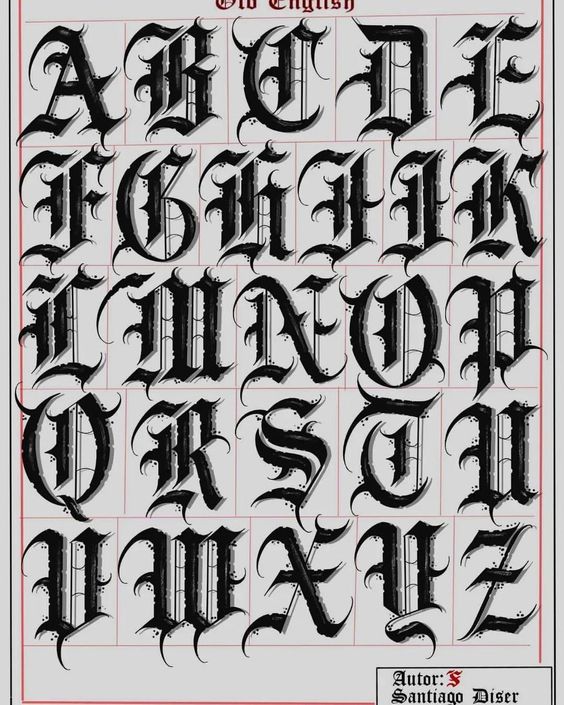 Old English
A B C D E
F G H I J K
L M N O P
Q R S T U
V W X Y Z
Autor: S
Santiago Diser